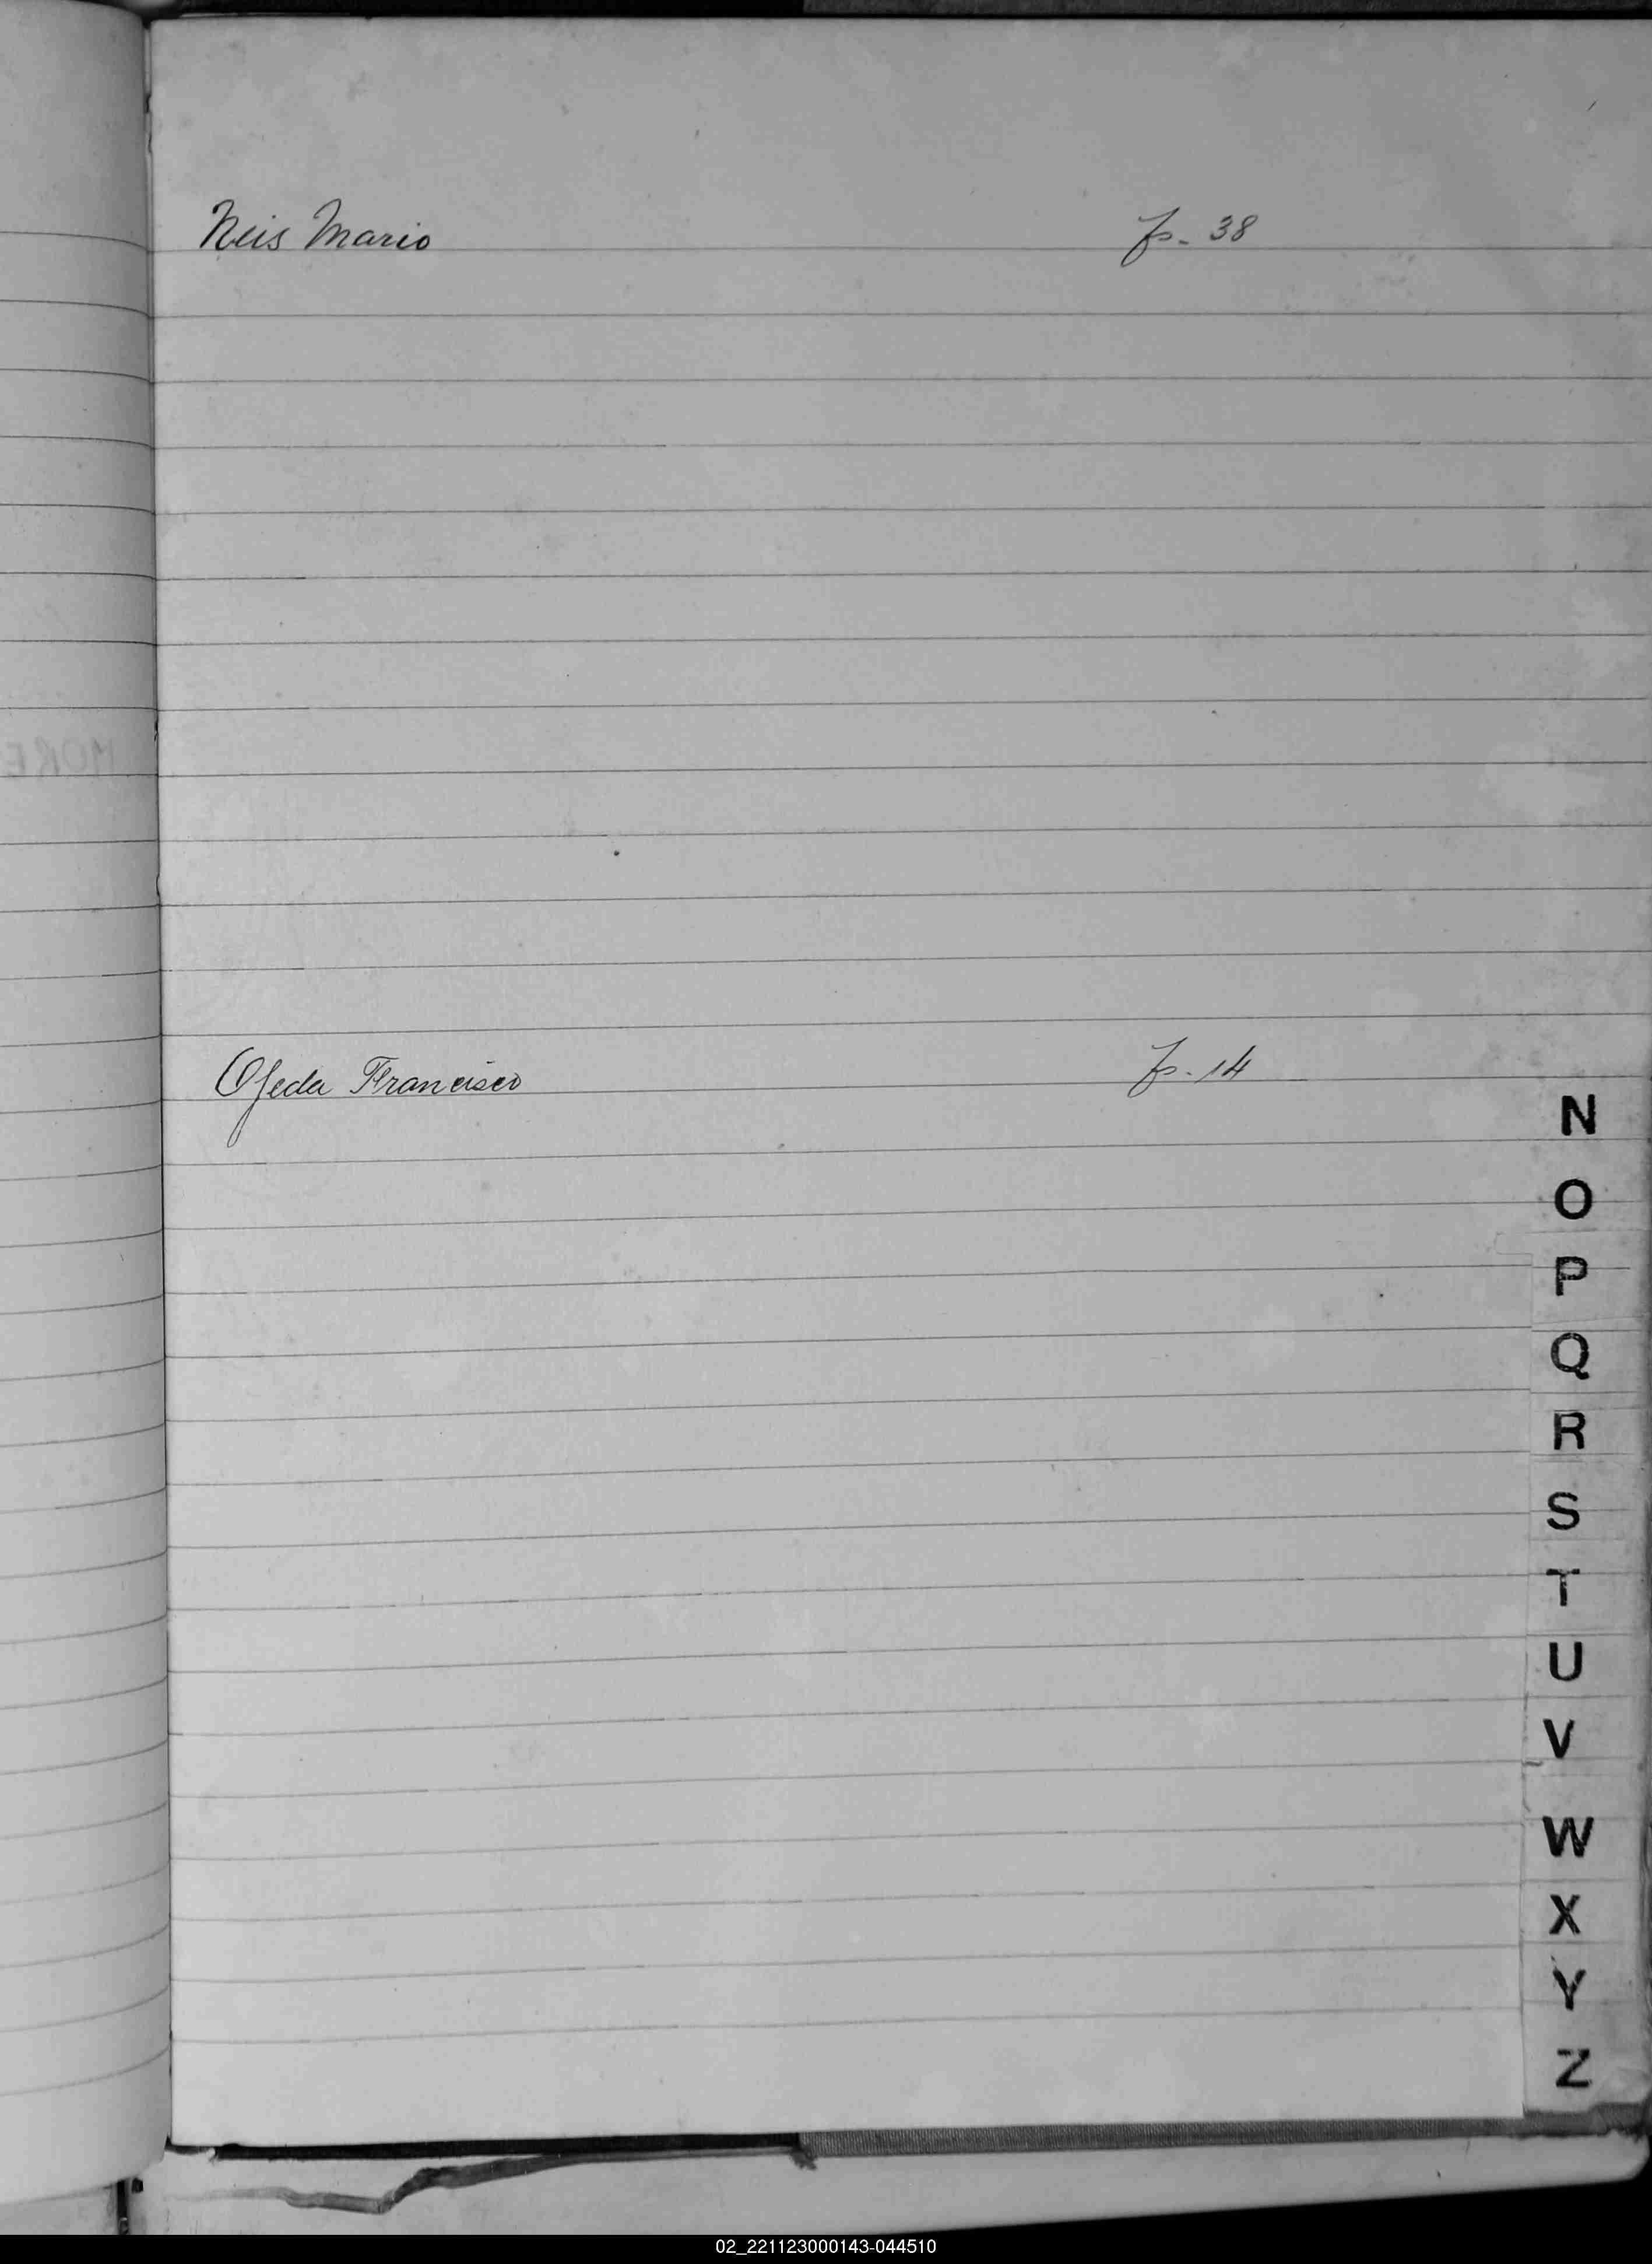 Neis Mario fs. 38
MORE
Ojeda Francisco fs. 14
N
O
P
Q
R
S
T
U
V
W
X
Y
Z
02_221123000143-044510